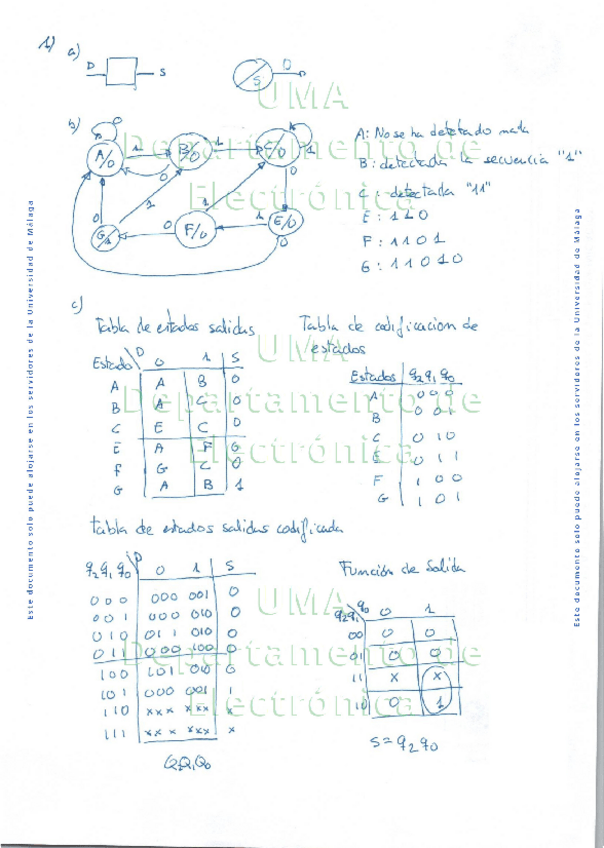 1) a)
D S D
S
b)
A/0 1 B/0 1 C/0 1
0 0 0
G/1 0 F/0 1 E/0
0 1 1 0
A: No se ha detectado nada
B: detectada la secuencia "1"
C: detectada "11"
E: 110
F: 1101
G: 11010
c)
Tabla de estados salidas
Estado D 0 1 S
A A B 0
B A C 0
C E C 0
E A F 0
F G C 0
G A B 1
Tabla de codificacion de
estados
Estados q2 q1 q0
A 0 0 0
B 0 0 1
C 0 1 0
E 0 1 1
F 1 0 0
G 1 0 1
Tabla de estados salidas codificada
q2 q1 q0 D 0 1 S
0 0 0 000 001 0
0 0 1 000 010 0
0 1 0 011 010 0
0 1 1 000 100 0
1 0 0 101 010 0
1 0 1 000 001 1
1 1 0 xxx xxx x
1 1 1 xxx xxx x
Q2Q1Q0
Función de Salida
q2q1 q0 0 1
00 0 0
01 0 0
11 x x
10 0 1
S = q2 q0
UMA
Departamento de
Electrónica
UMA
Departamento de
Electrónica
UMA
Departamento de
Electrónica
Este documento solo puede alojarse en los servidores de la Universidad de Málaga
Este documento solo puede alojarse en los servidores de la Universidad de Málaga